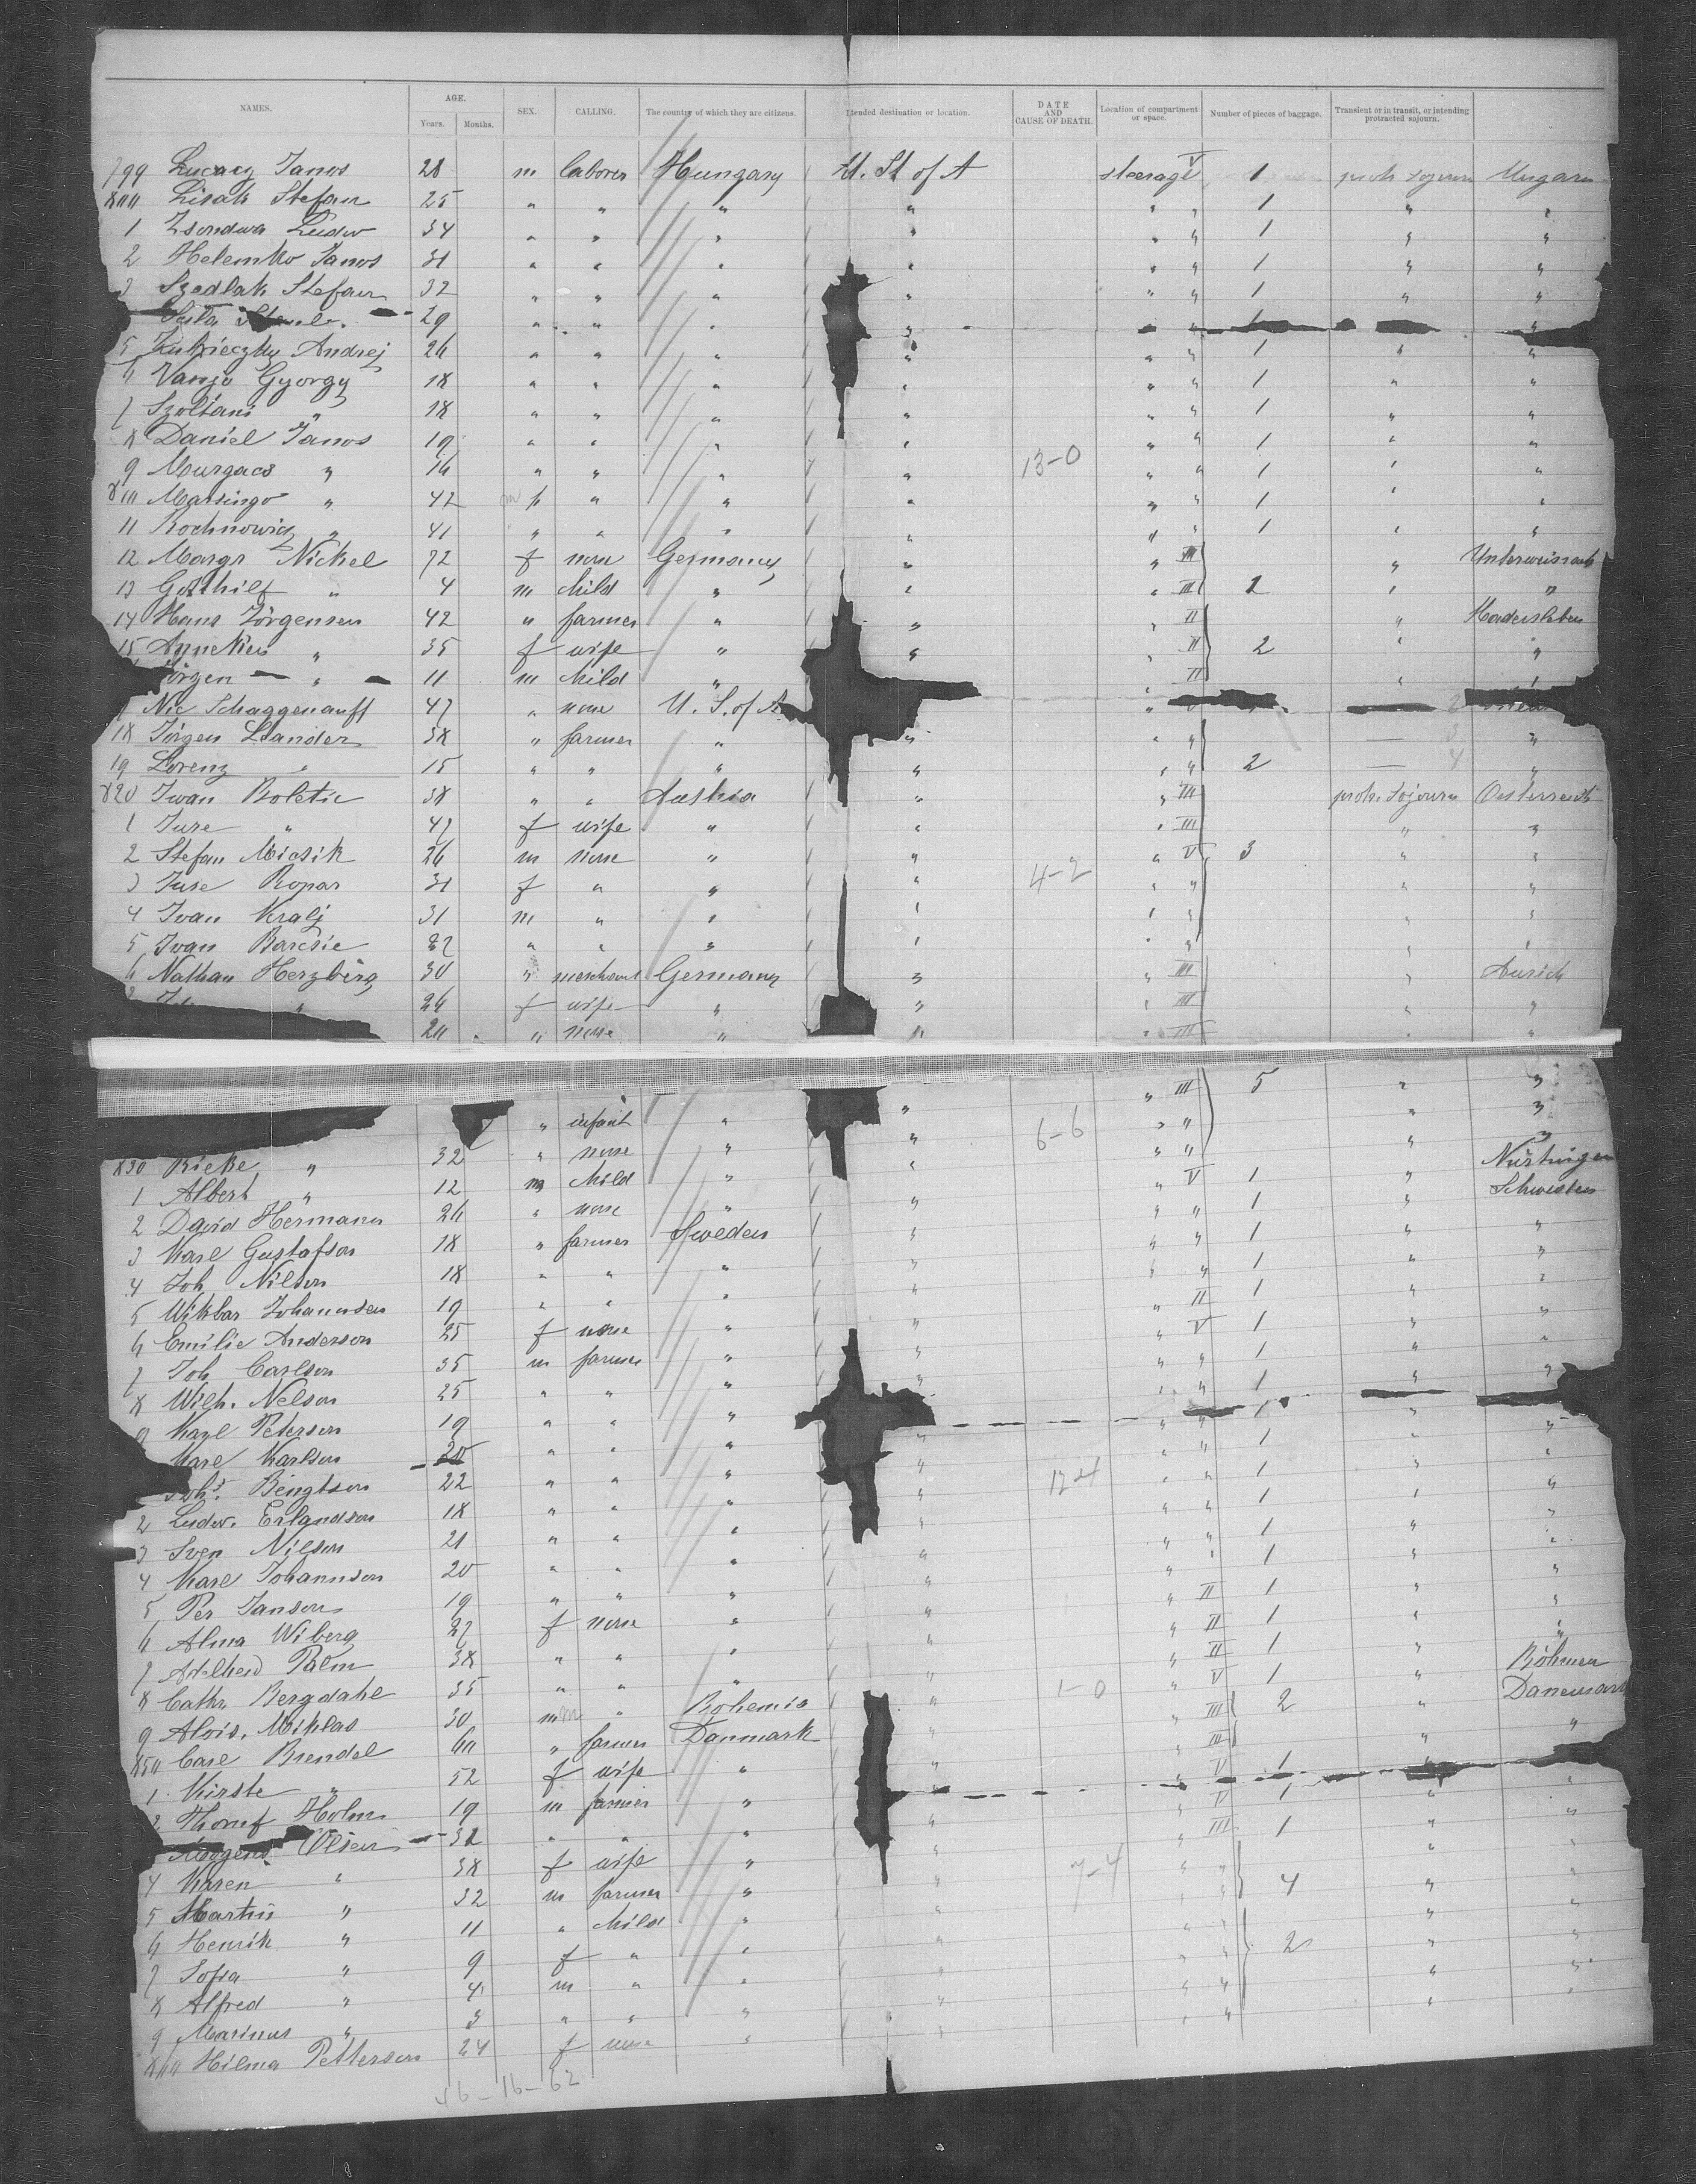 NAMES. AGE. Years. Months. SEX. CALLING. The country of which they are citizens. Intended destination or location. DATE AND CAUSE OF DEATH. Location of compartment or space. Number of pieces of baggage. Transient or in transit, or intending protracted sojourn.
799 Lucacz Janos 28 m laborer Hungary U. St of A steerage V 1 protr sojourn Ungarn
800 Lisak Stefan 25 " " " " " " 1 " "
1 Ludw 34 " " " " " " 1 " "
2 Helemko Janos 31 " " " " " " 1 " "
3 Szedlak Stefan 32 " " " " " " 1 " "
29 " " " " " "
5 Andrej 26 " " " " " " 1 " "
6 Vanjo Gyorgy 18 " " " " " " 1 " "
7 Szoltani " 18 " " " " " " 1 " "
8 Daniel Janos 19 " " " " " " 1 " "
9 Murgacs " 16 " " " " 13-0 " " 1 " "
810 Marsingo " 42 m " " " " " 1 " "
11 Rochnowicz " 41 " " " " " " 1 " "
12 Margr Nickel 72 f none Germany " " III "
13 Gotthilf " 4 m child " " " III 2 " "
14 Hans Jörgensen 42 " farmer " " " II " Hadersleben
15 Anneken " 35 f wife " " " II 2 " "
Jörgen " 11 m child " " II " "
Nic Schaggenauft 47 " none U. S. of A " V
18 Jörgen Lander 38 " farmer " " " " — 3 "
19 Lorenz " 15 " " " " " " 2 — 4 "
820 Iwan Boletic 38 " " Austria " " III protr. sojourn Oesterreich
1 Jure " 47 f wife " " " III " "
2 Stefan Micsik 26 m none " " " V 3 " "
3 Juse Ropar 31 f " " " 4-2 " " " "
4 Ivan Kralj 31 m " " " " " " "
5 Ivan Barcsic " " " " " " " "
6 Nathan Herzberg 30 " merchant Germany " " III " Aurich
" 26 f wife " " " III " "
20 " none " " " III " "
" III 5 " "
" infant " " 6-6 " " " "
830 Rieke " 32 " none " " " " " "
1 Albert " 12 m child " " " V 1 " Nürtingen
2 David Hermann 26 " none " " " " 1 " Schweden
3 Karl Gustafson 18 " farmer Sweden " " " 1 " "
4 Joh. Nilson 18 " " " " " " 1 " "
5 Johannsen 19 " " " " " II 1 " "
6 Emilie Anderson 25 f none " " " V 1 " "
7 Joh. Carlson 35 m farmer " " " " 1 " "
8 Wilh. Nelson 25 " " " " " " 1 " "
9 Karl Peterson 19 " " " " " " 1 " "
Karl Karlson 20 " " " " " " 1 " "
Joh. Bengtson 22 " " " " 12-4 " " 1 " "
2 Ludw. Erlandson 18 " " " " " " 1 " "
3 Sven Nilson 21 " " " " " " 1 " "
4 Karl Johannson 20 " " " " " " 1 " "
5 Per Janson 19 " " " " " II 1 " "
6 Alma Wiberg 27 f none " " " II 1 " "
7 Adelheid Palm 38 " " " " " II 1 " "
8 Cathr. Bergdahl 35 " " " " 1-0 " V 1 " Böhmen
9 Alois. Miklas 30 m " Bohemia " " III 2 " Danemark
850 Carl Brendel 60 " farmer Danmark " " III "
1 Kirste " 52 f wife " " V 1 "
2 Holm 19 m farmer " " " V 1 " "
Mogens Olsen 32 " " " " " III 1 " "
4 Karen " 38 f wife " " 7-4 " "
5 Martin " 32 m farmer " " " " 4 " "
6 Henrik " 11 " child " " " " " "
7 Sofia " 9 f " " " " " 2 " "
8 Alfred " 4 m " " " " " " "
9 Marinus " 3 " " " " " " " "
860 Hilma Petterson 24 f none "
46-16-62